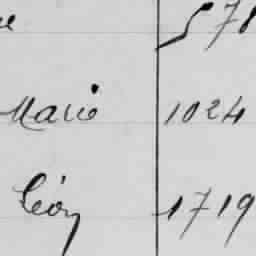 Marie 1024
Léon 1719